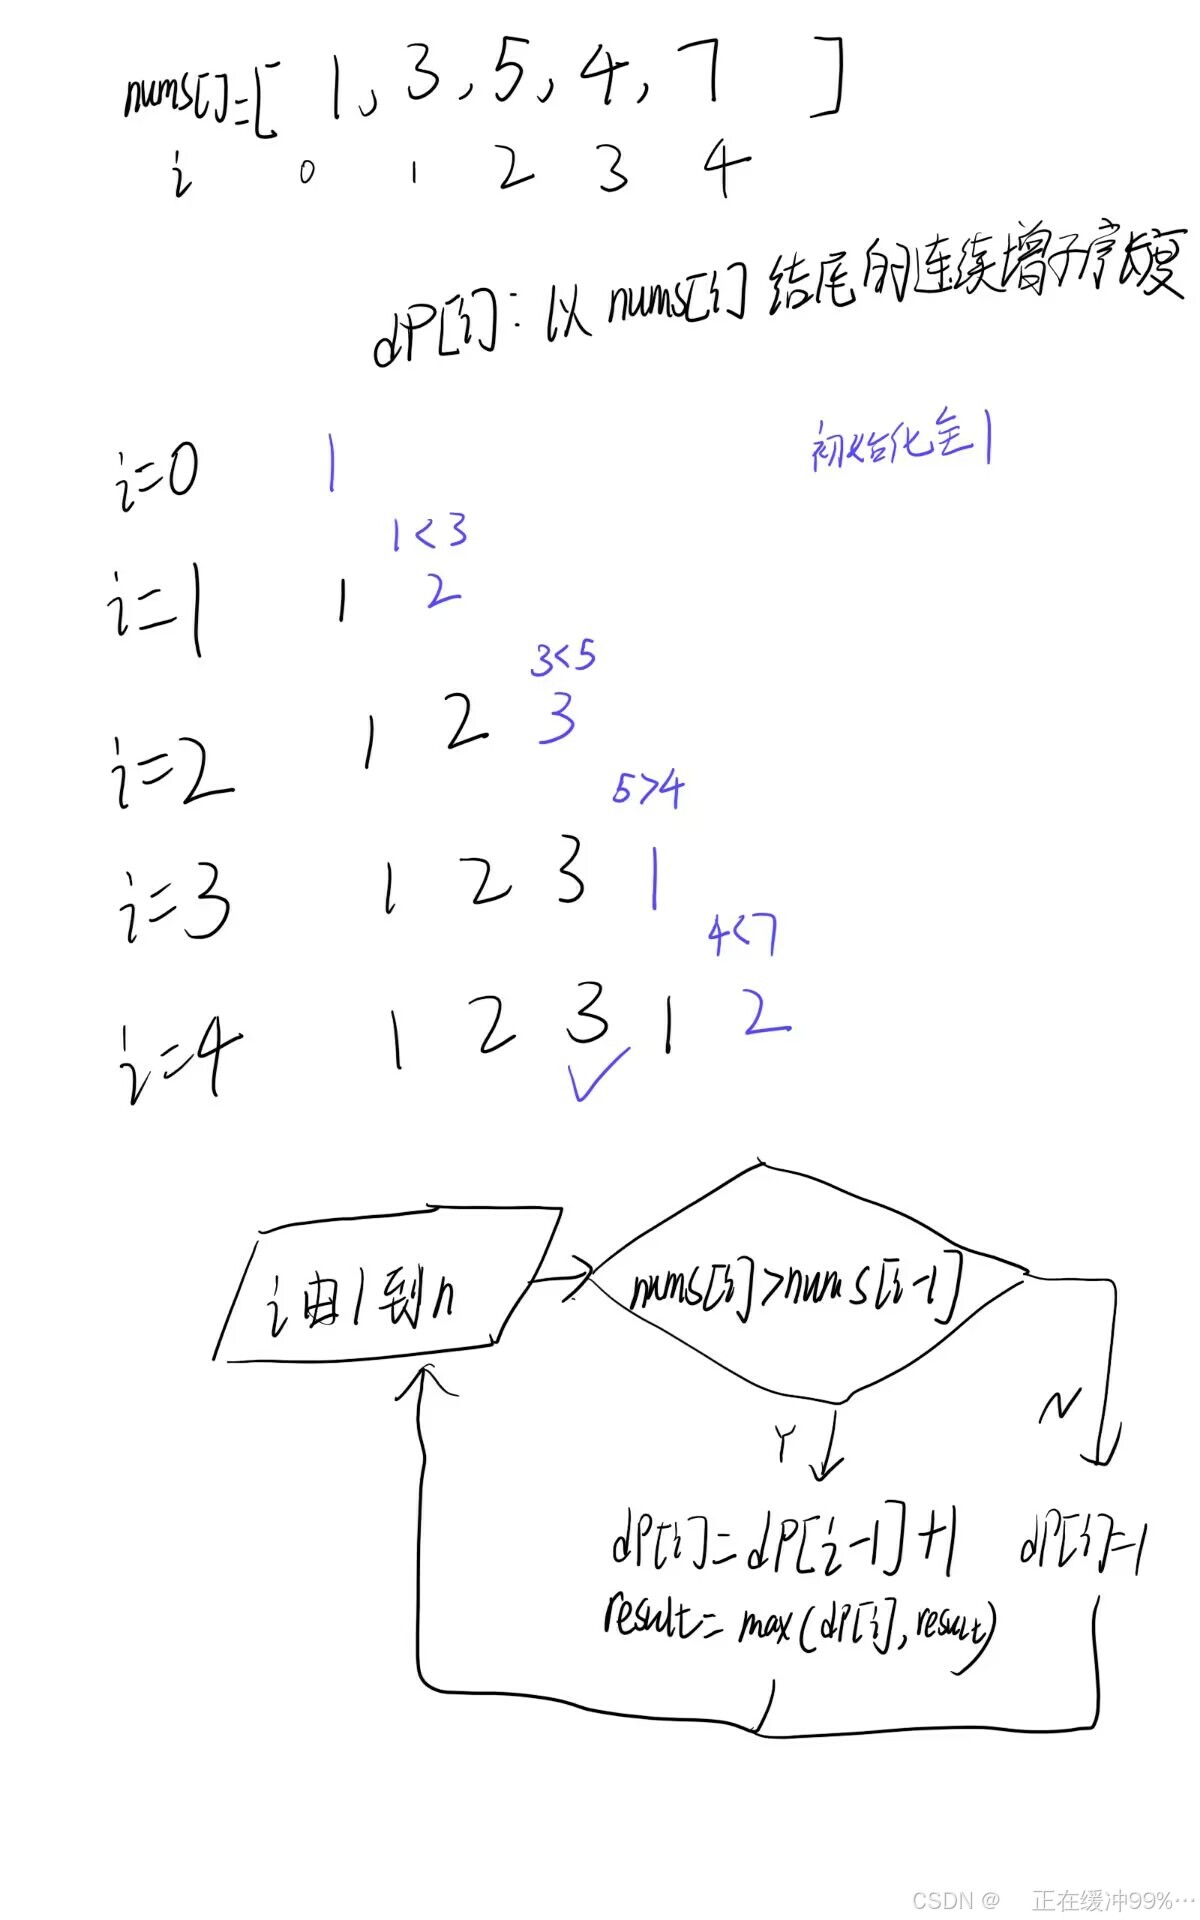 nums[]=[ 1, 3, 5, 4, 7 ]
i 0 1 2 3 4
dP[i]: 以nums[i]结尾的连续增子序长度
i=0 1 初始化全1
1<3
i=1 1 2
3<5
i=2 1 2 3
5>4
i=3 1 2 3 1
4<7
i=4 1 2 3 1 2
✓
i由1到n
nums[i]>nums[i-1]
Y
N
dP[i]=dP[i-1]+1
dP[i]=1
result=max(dP[i],result)
CSDN @ 正在缓冲99%…